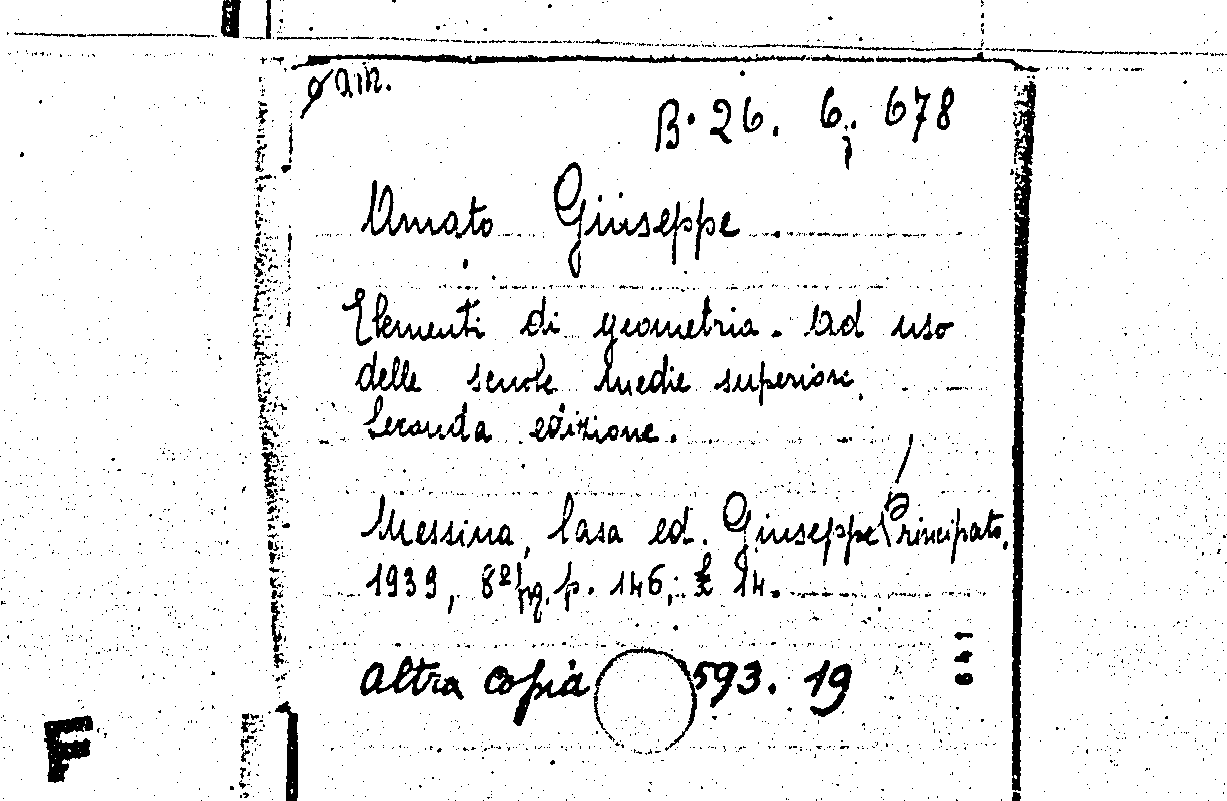 am.
B. 26. 6. 678
Amato Giuseppe
Elementi di geometria. Ad uso
delle scuole medie superiori.
Seconda edizione.
Messina, Casa ed. Giuseppe Principato,
1939, 8º fig. p. 146; £ 14.
641
altra copia 593. 19
F